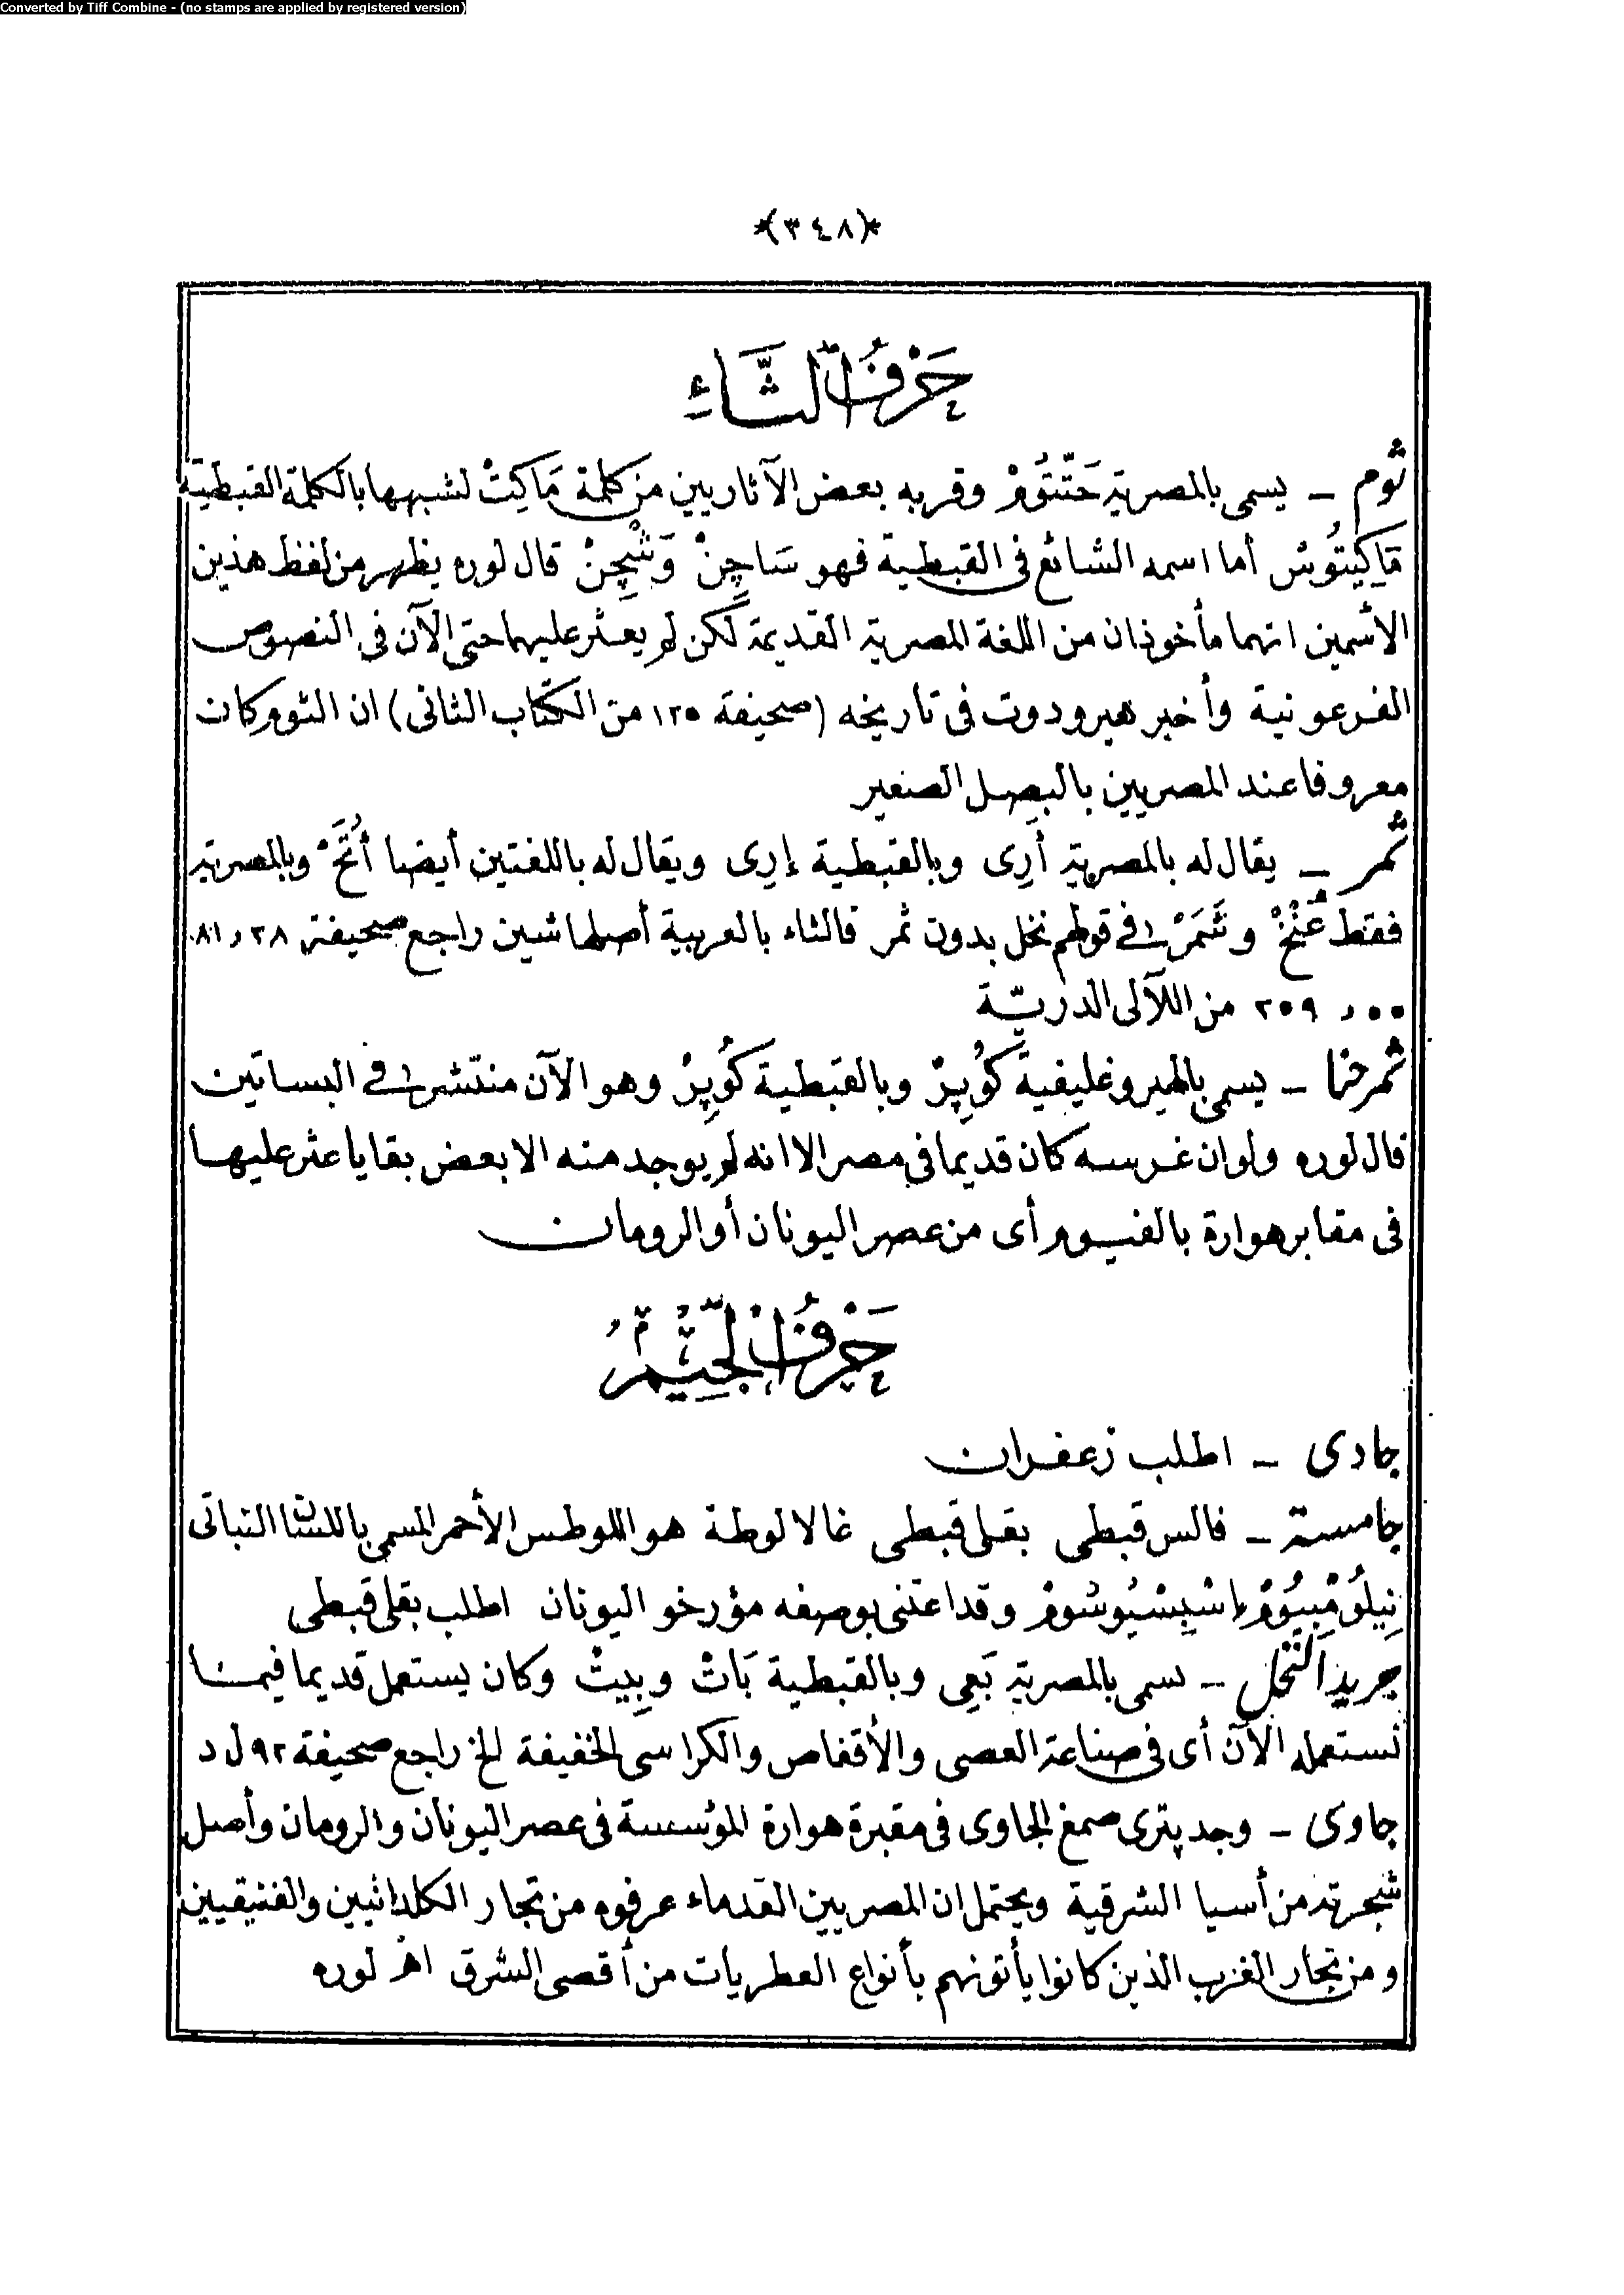 Converted by Tiff Combine - (no stamps are applied by registered version)
*(٣٤٨)*
حَرْفُ الثَّاءِ
ثوم – يسمى بالمصرية حَتّتُومْ وقربه بعض الآثاريين من كلمة مَاكِتْ لشبهها بالكلمة القبطية
مَاكِيتُوشْ أما اسمه الشائع فى القبطية فهو سَاجِنْ وَشْچِنْ قال لوره يظهر من لفظ هذين
الاسمين انهما مأخوذان من اللغة المصرية القديمة لكن لم يعثر عليهما حتى الآن فى النصوص
الفرعونية وأخبر هيرودوت فى تاريخه (صحيفة ١٢٥ من الكتاب الثانى) ان الثوم كان
معروفا عند المصريين بالبصل الصغير
ثمر – يقال له بالمصرية أرِى وبالقبطية إرِى ويقال له باللغتين أيضا أُتَخْ وبالمصرية
فقط عُنْخْ وشَمَرْ فى قولهم نخل بدون ثمر فالثاء بالعربية أصلها شين راجع صحيفة ٢٨ و ٨١
٥٥ و ٢٥٩ من اللآلى الدريّة
ثمر حنا – يسمى بالهيروغليفية كُوپِرْ وبالقبطية كُوپِرْ وهو الآن منتشر فى البساتين
قال لوره ولو ان غرسه كان قديما فى مصر الا انه لم يوجد منه الا بعض بقايا عثر عليها
فى مقابر هوارة بالفيوم أى من عصر اليونان أو الرومان
حَرْفُ الْجِيْمِ
جادى – اطلب زعفران
جامسة – فالس قبطى بقلى قبطى غالالوطة هو اللوطس الأحمر المسمى باللسان النباتى
نِيلُومْبِيُومْ اسْپِسْيُوسُومْ وقد اعتنى بوصفه مؤرخو اليونان اطلب بقلى قبطى
جريد النخل – يسمى بالمصرية بَعِى وبالقبطية بَاتْ وبِيتْ وكان يستعمل قديما فيما
نستعمله الآن أى فى صناعة العصى والأقفاص والكراسى الخفيفة الخ راجع صحيفة ٩٢ ل د
جاوى – وجد پترى صمغ الجاوى فى مقبرة هوارة المؤسسة فى عصر اليونان والرومان وأصل
شجرته من أسيا الشرقية ويحتمل ان المصريين القدماء عرفوه من تجار الكلدانيين والفنيقيين
ومن تجار الغرب الذين كانوا يأتونهم بأنواع العطريات من أقصى الشرق اه لوره